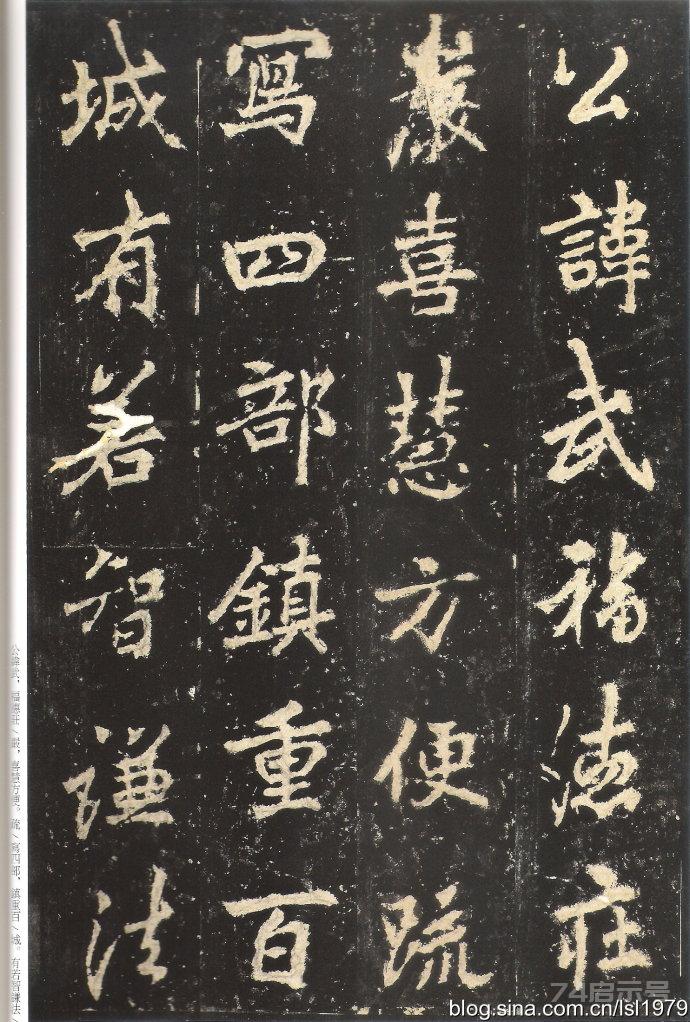 公諱武福德莊
嚴喜慧方便疏
寫四部鎮重百
城有若智謙法
公諱武，福德莊／嚴，喜慧方便。疏／寫四部，鎮重百／城。有若智謙法／
74启示号
blog.sina.com.cn/lsl1979